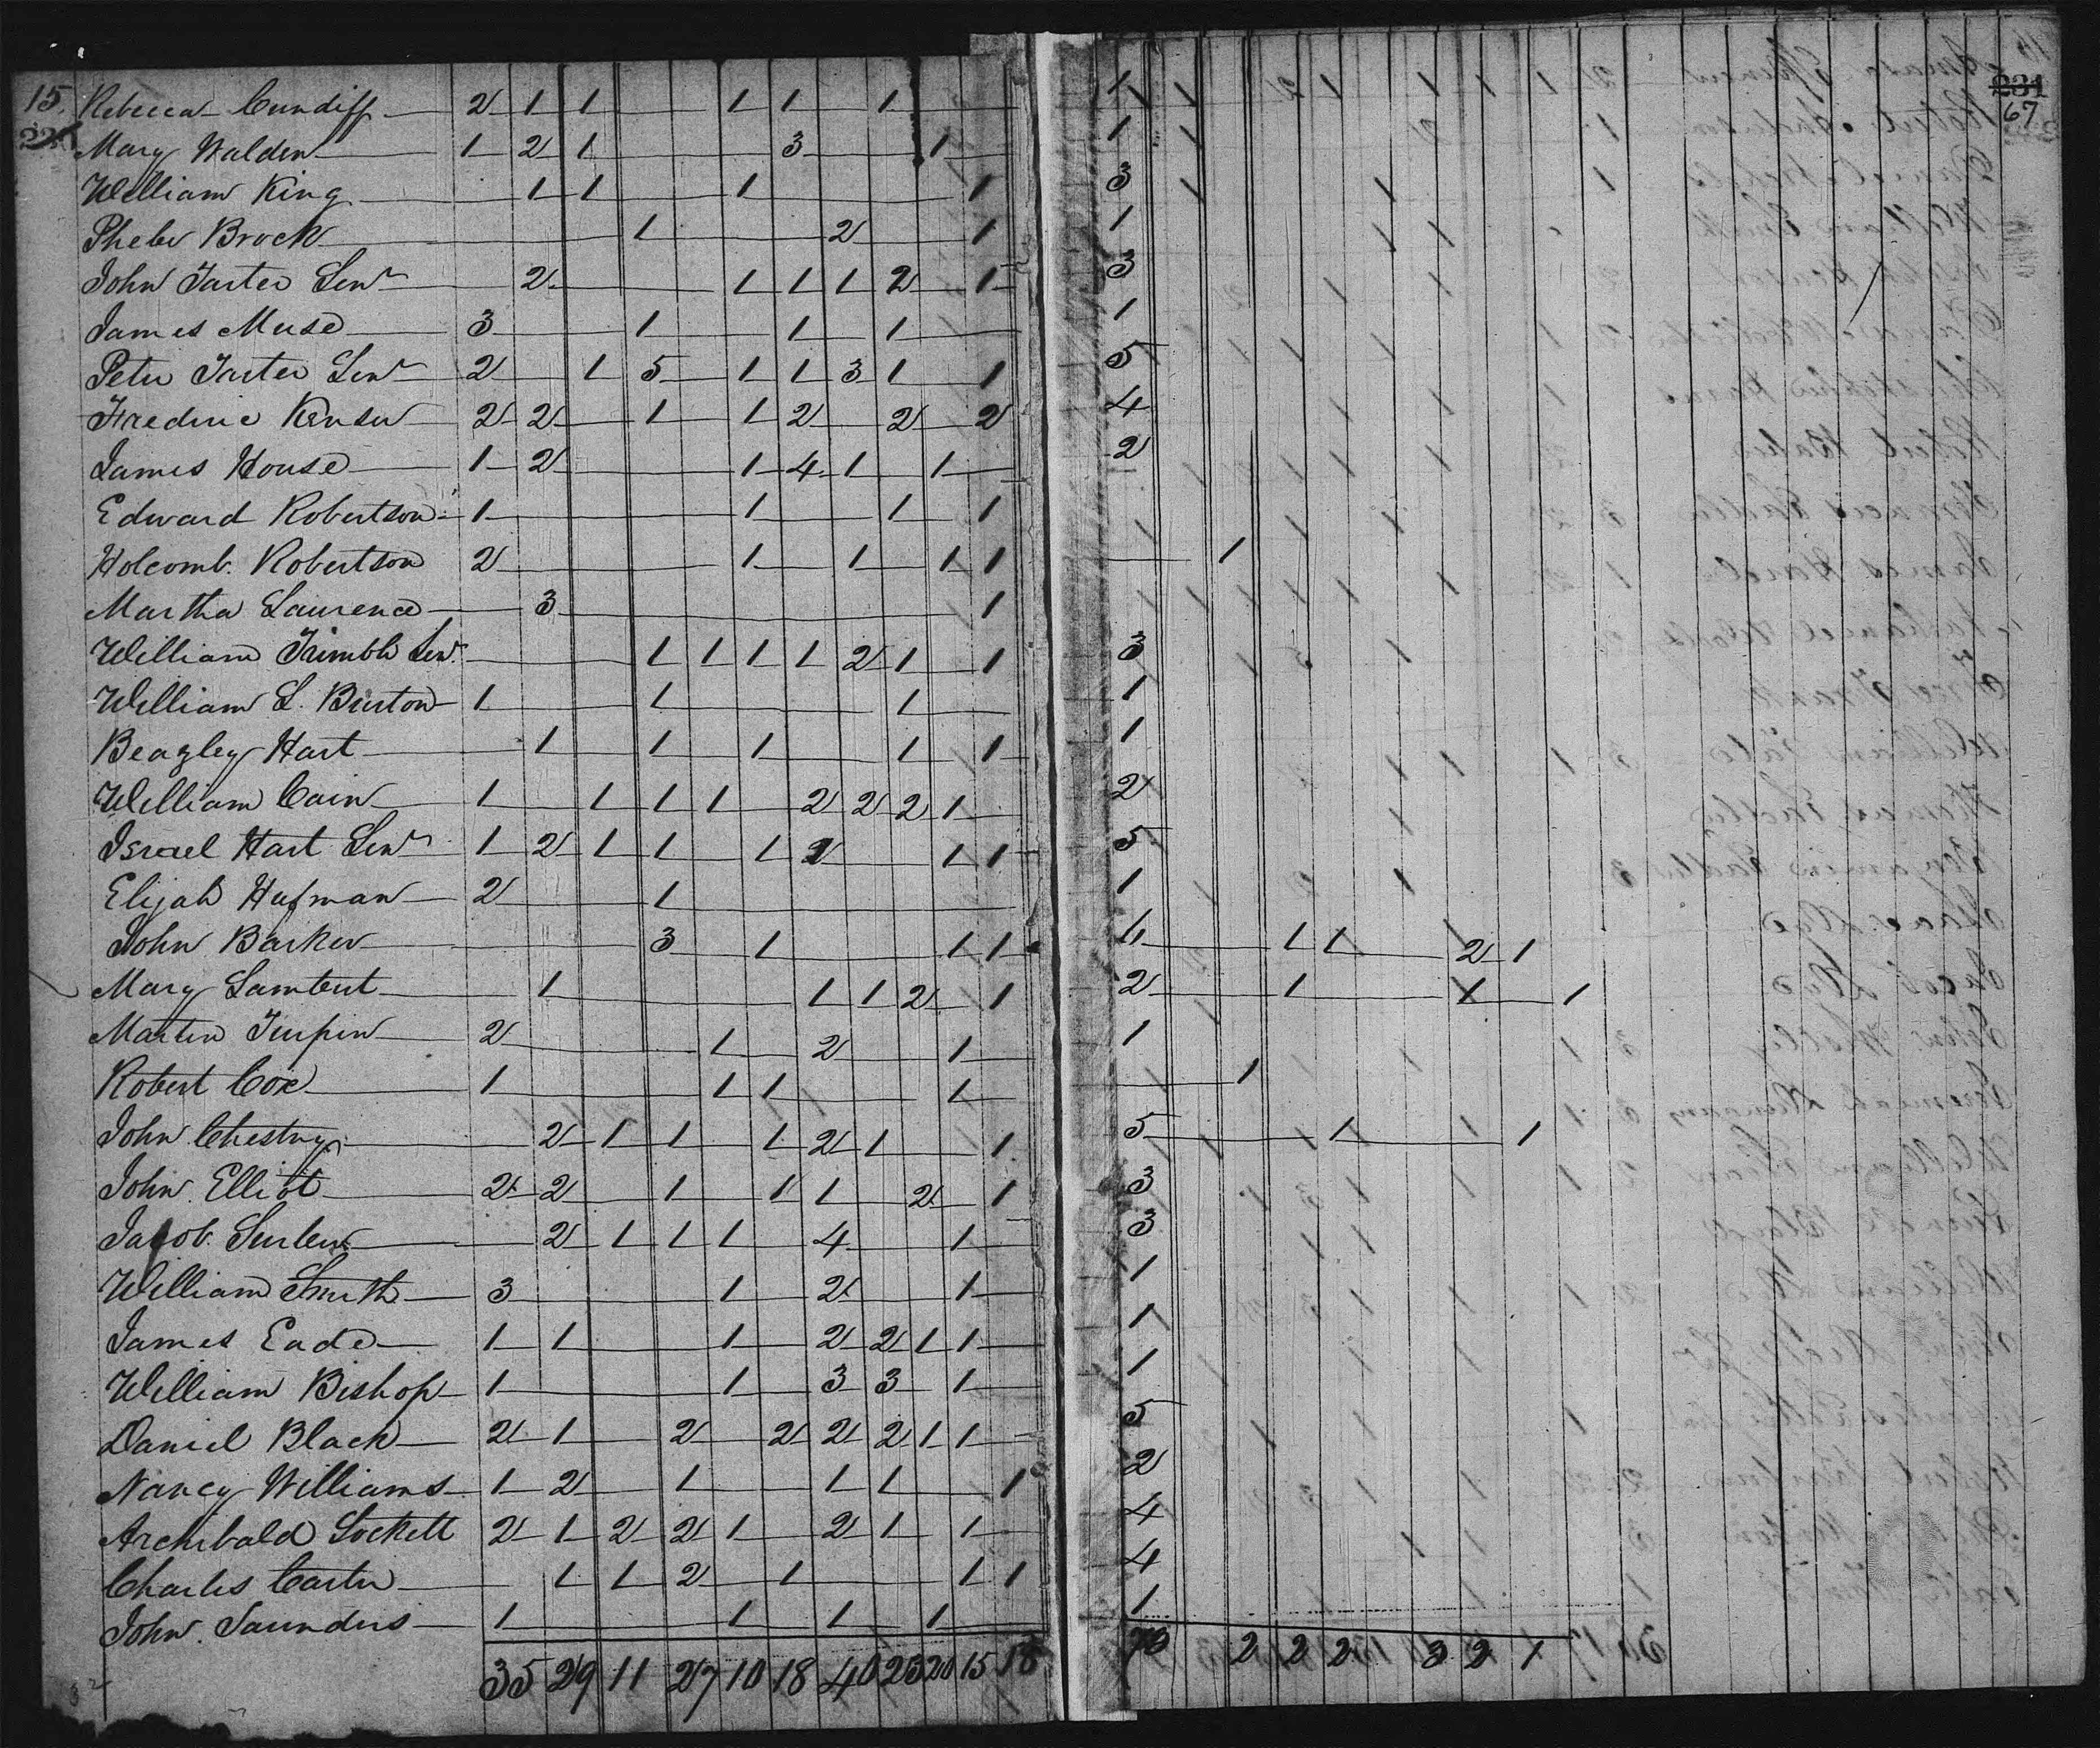 15. Rebecca Cundiff 2 1 1 1 1 1 1 231
Mary Walden 1 2 1 3 1 1 67
William King 1 1 1 1 3
Phebe Brock 1 2 1 1
John Tarter Senr 2 1 1 1 2 1 3
James Muse 3 1 1 1 1
Peter Tarter Senr 2 1 5 1 1 3 1 1 5
Fredric Kenser 2 2 1 1 2 2 2 4
James House 1 2 1 4 1 1 2
Edward Robertson 1 1 1 1
Holcomb. Robertson 2 1 1 1 1 1
Martha Laurence 3 1
William Trimble Senr. 1 1 1 1 2 1 1 3
William L. Burton 1 1 1 1
Beazley Hart 1 1 1 1 1 1
William Cain 1 1 1 1 2 2 2 1 2
Israel Hart Senr 1 2 1 1 1 2 1 1 5
Elijah Hufman 2 1 1
John Barker 3 1 1 1 4 1 1 2 1
Mary Lambert 1 1 1 2 1 2 1 1 1
Martin Turpin 2 1 2 1 1
Robert Cox 1 1 1 1 1
John Chestny 2 1 1 1 2 1 1 5 1 1
John Elliot 2 2 1 1 1 2 1 3
Jacob 2 1 1 1 4 1 3
William Smith 3 1 2 1 1
James Eade 1 1 1 2 2 1 1 1
William Bishop 1 1 3 3 1 1
Daniel Black 2 1 2 2 2 2 1 1 5
Nancy Williams 1 2 1 1 1 1 2
Archibald Lockett 2 1 2 2 1 2 1 1 4
Charles Carter 1 1 2 1 1 1 4
John Saunders 1 1 1 1 1
35 29 11 27 10 18 40 25 20 15 18 70 2 2 2 3 2 1